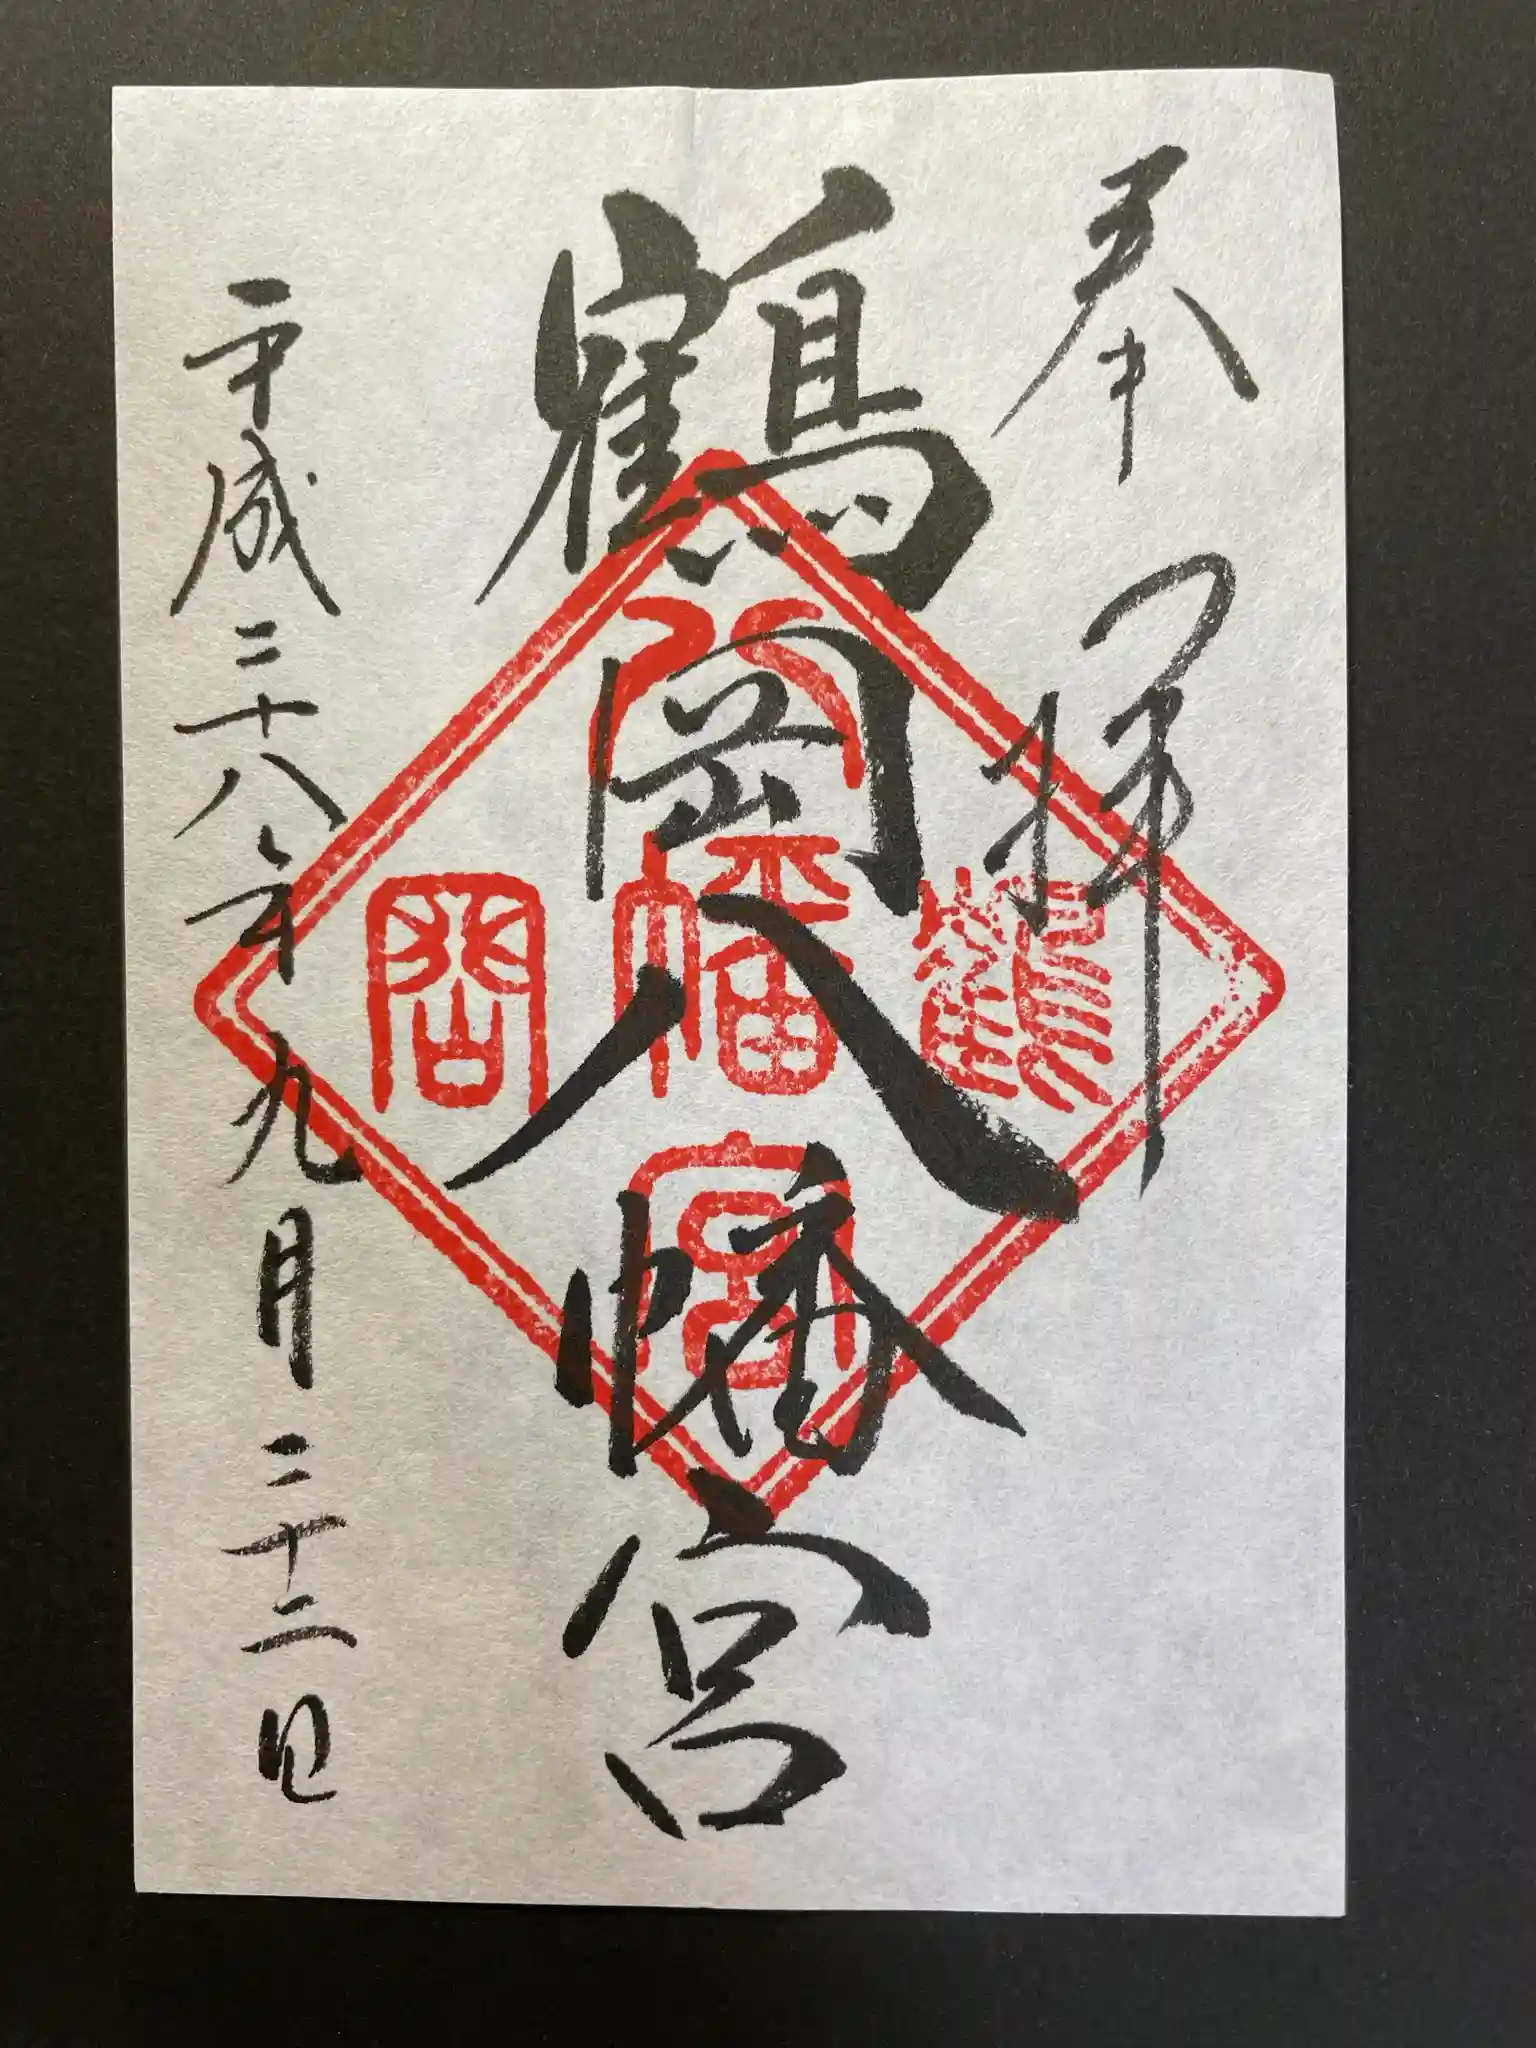 奉拝
鶴岡八幡宮
平成二十八年九月二十二日
八
鶴幡岡
宮